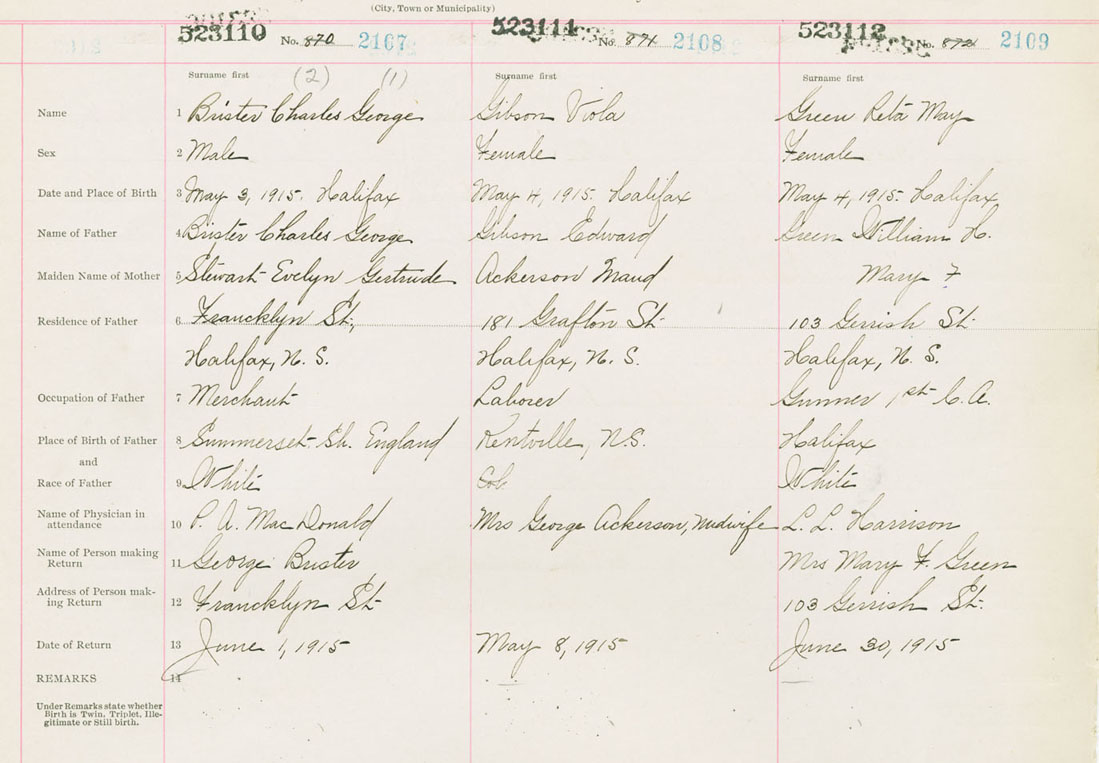 (City, Town or Municipality)
523110 No. 870 2107 523111 No. 871 2108 523112 No. 872 2109
Surname first (2) (1) Surname first Surname first
Name 1 Brister Charles George Gibson Viola Green Reta May
Sex 2 Male Female Female
Date and Place of Birth 3 May 3, 1915. Halifax May 4, 1915. Halifax May 4, 1915. Halifax
Name of Father 4 Brister Charles George Gibson Edward Green William H.
Maiden Name of Mother 5 Stewart Evelyn Gertrude Ackerson Maud Mary F
Residence of Father 6 Francklyn St., 181 Grafton St. 103 Gerrish St.
Halifax, N. S. Halifax, N. S. Halifax, N. S.
Occupation of Father 7 Merchant Laborer Gunner 1st C. A.
Place of Birth of Father 8 Summerset Sh. England Kentville, N.S. Halifax
and
Race of Father 9 White Col White
Name of Physician in
attendance 10 P. A. MacDonald Mrs George Ackerson, Midwife L. L. Harrison
Name of Person making
Return 11 George Brister Mrs Mary F. Green
Address of Person mak-
ing Return 12 Francklyn St. 103 Gerrish St.
Date of Return 13 June 1, 1915 May 8, 1915 June 30, 1915
REMARKS 14
Under Remarks state whether
Birth is Twin, Triplet, Ille-
gitimate or Still birth.